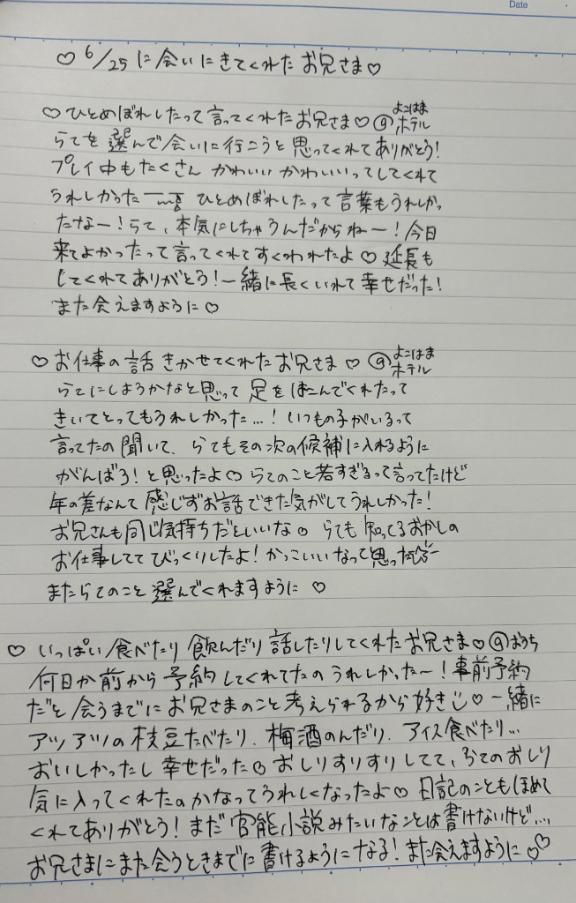 Date
♡ 6/25 に会いにきてくれたお兄さま♡
♡ ひとめぼれしたって言ってくれたお兄さま♡ @よこはまホテル
らてを選んで会いに行こうと思ってくれてありがとう!
プレイ中もたくさん かわいい かわいいってしてくれて
うれしかった ひとめぼれしたって言葉もうれしかっ
たなー!らて、本気にしちゃうんだからねー!今日
来てよかったって言ってくれてすくわれたよ♡ 延長も
してくれてありがとう!一緒に長くいれて幸せだった!
また会えますように♡
♡ お仕事の話きかせてくれたお兄さま♡ @よこはまホテル
らてにしようかなと思って足をはこんでくれたって
きいてとってもうれしかった…!いつもの子がいるって
言ってたの聞いて、らてもその次の候補に入れるように
がんばろ!と思ったよ♡ らてのこと若すぎるって言ってたけど
年の差なんて感じずお話できた気がしてうれしかった!
お兄さんも同じ気持ちだといいな♡ らても知ってるおかしの
お仕事しててびっくりしたよ!かっこいいなって思った
またらてのこと選んでくれますように♡
♡ いっぱい食べたり飲んだり話したりしてくれたお兄さま♡ @おうち
何日か前から予約してくれてたのうれしかったー!事前予約
だと会うまでにお兄さまのこと考えられるから好き♡ 一緒に
アツアツの枝豆たべたり、梅酒のんだり、アイス食べたり…
おいしかったし幸せだった♡ おしりすりすりしてて、らてのおしり
気に入ってくれたのかなってうれしくなったよ♡ 日記のこともほめて
くれてありがとう!まだ官能小説みたいなことは書けないけど…
お兄さまにまた会うときまでに書けるようになる!また会えますように♡♡